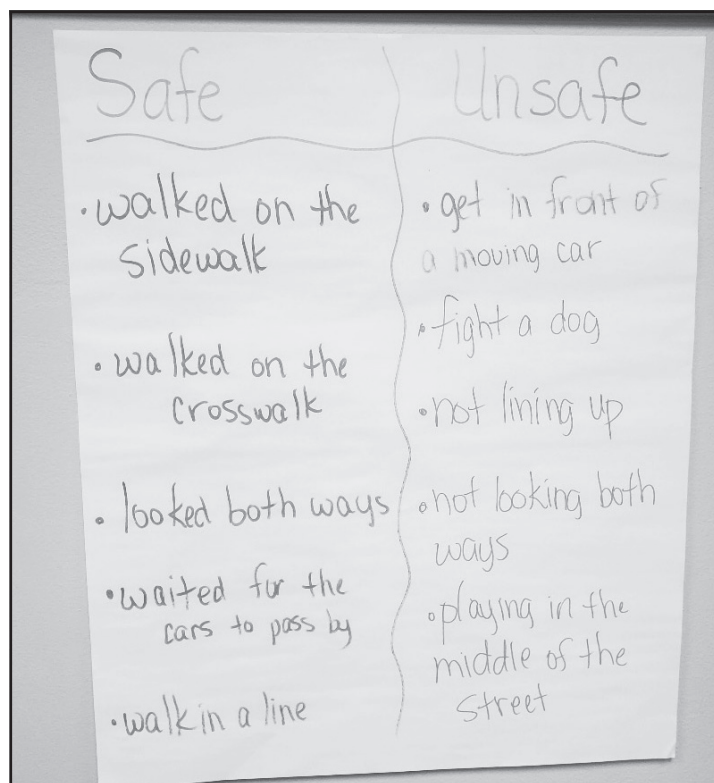 Safe
walked on the
sidewalk
walked on the
crosswalk
looked both ways
waited for the
cars to pass by
walk in a line
Unsafe
get in front of
a moving car
fight a dog
not lining up
not looking both
ways
playing in the
middle of the
street